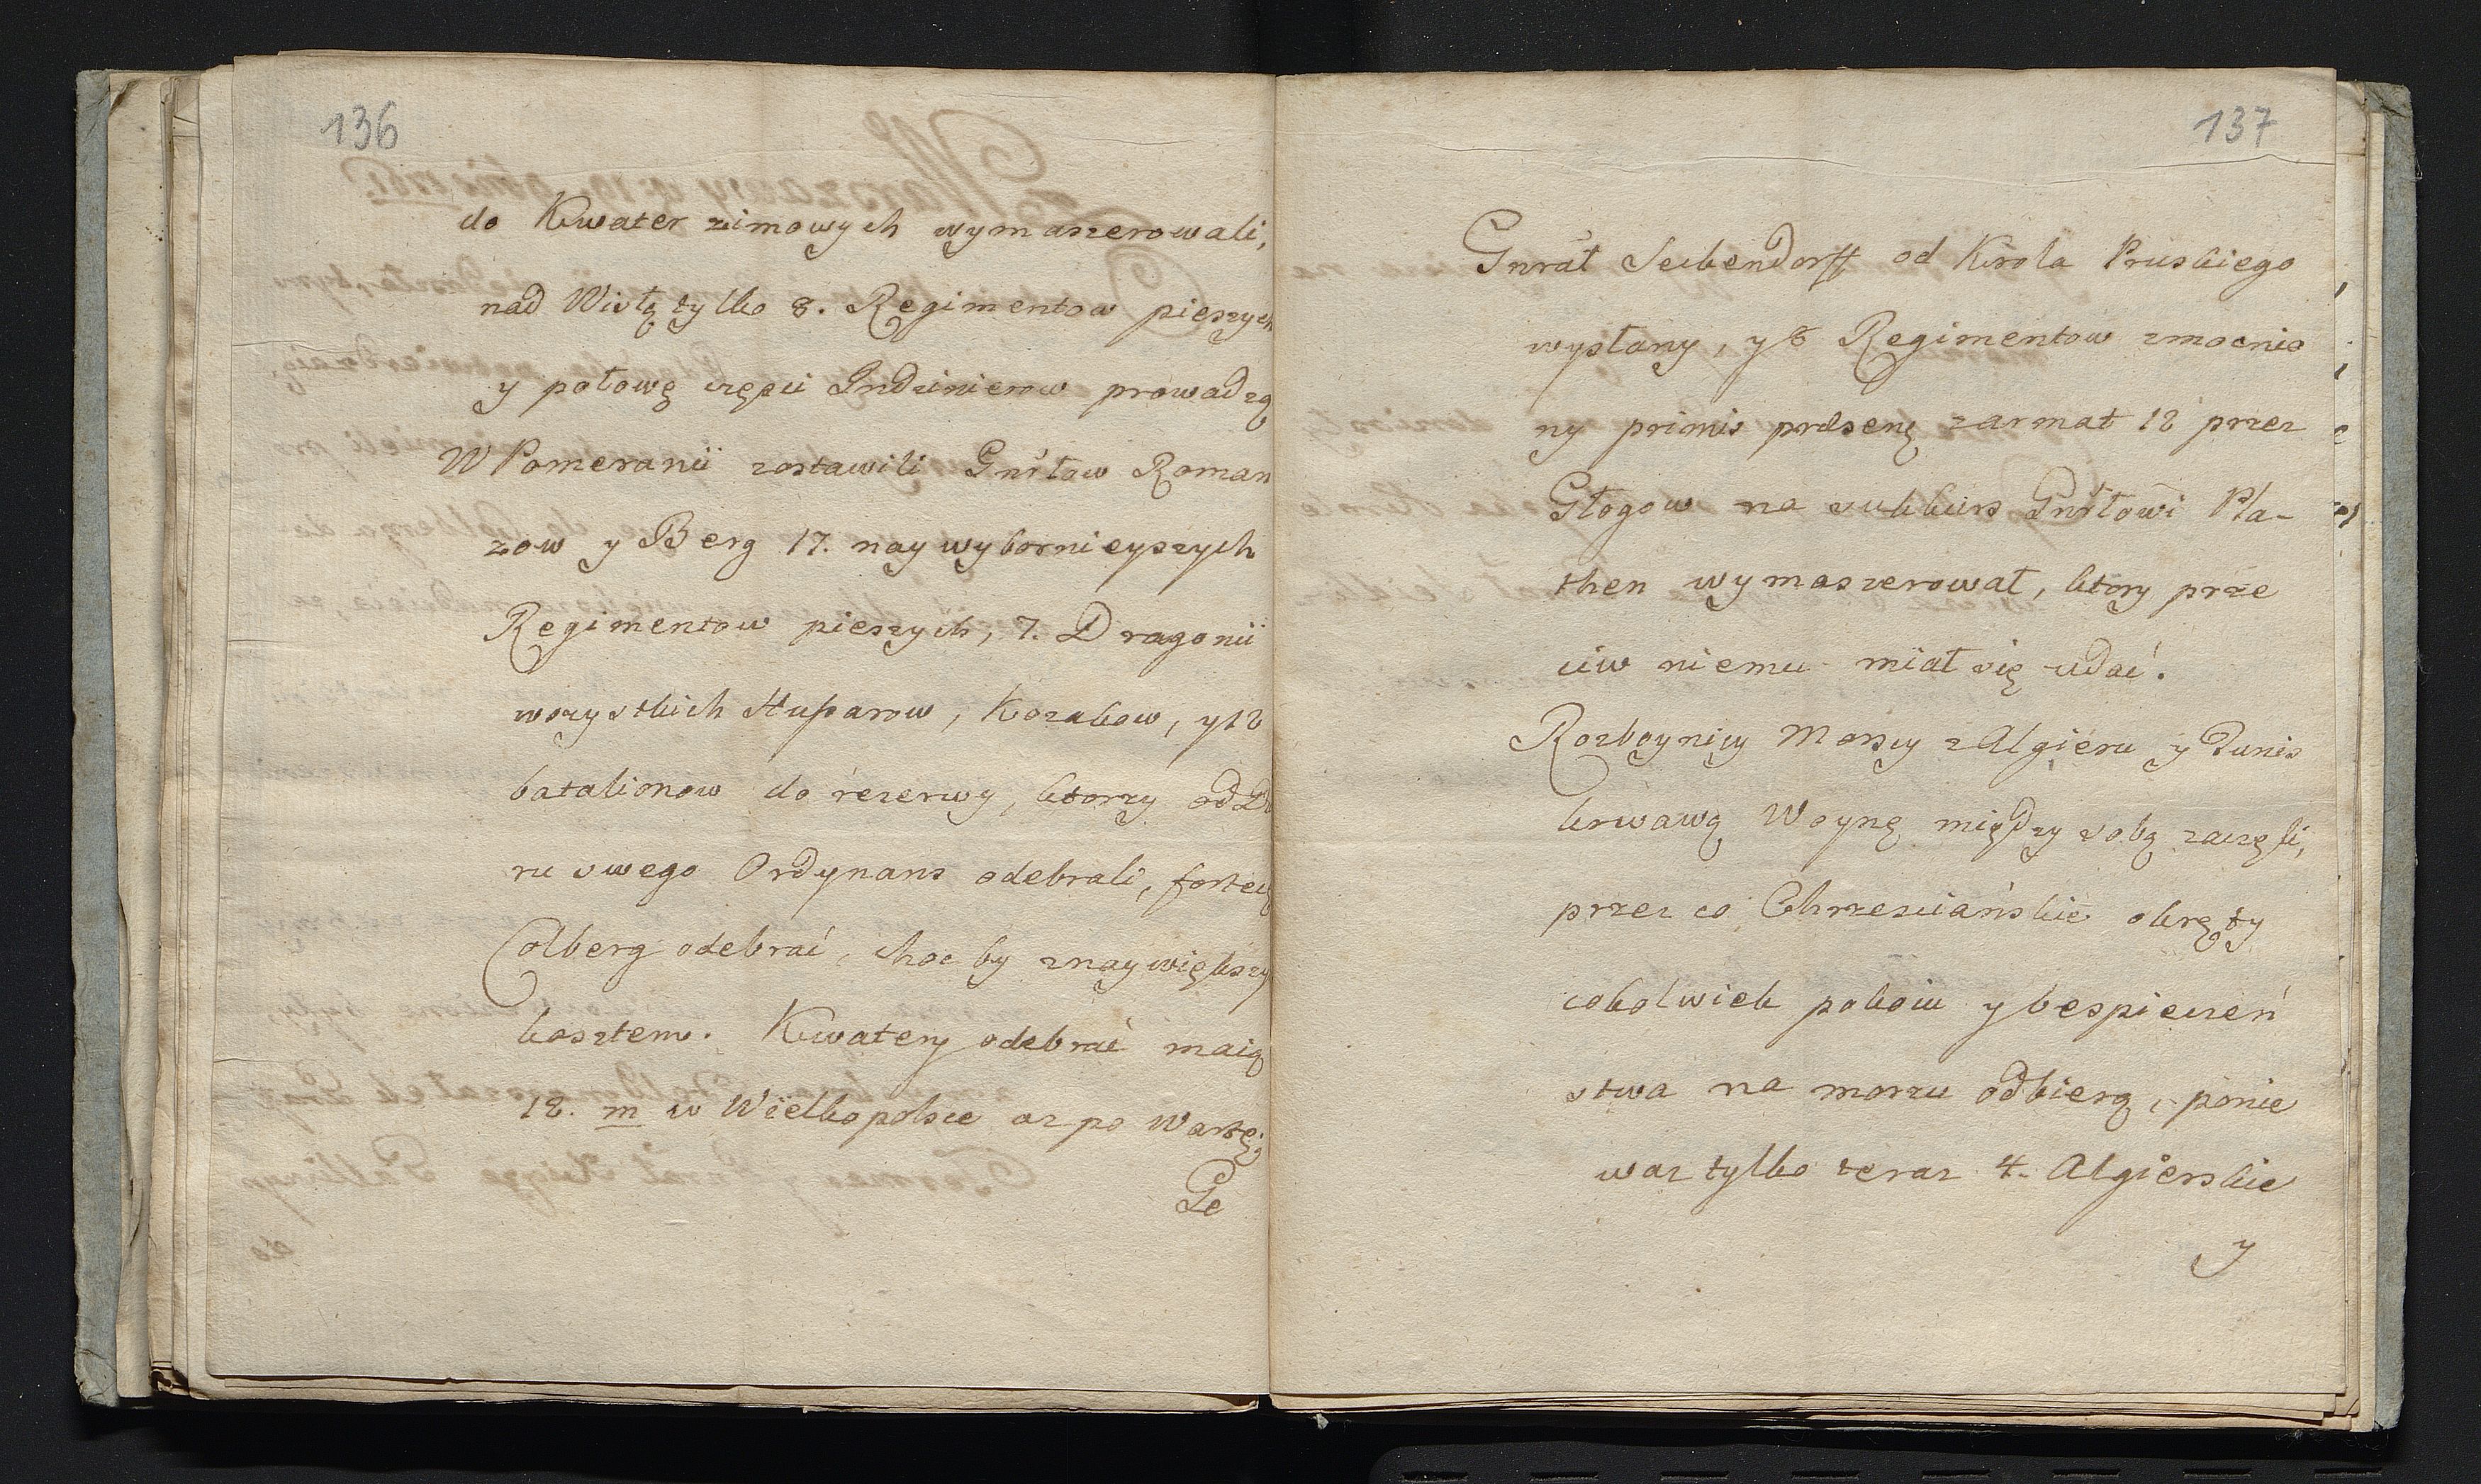 136
do Kwater zimowych wymaszerowali,
nad Wisłę tylko 8. Regimentow pieszych
y połowę częsci Indzinierow prowadzą
W Pomeranii zostawili Gnrłow Roman
zow y Berg 17. naywybornieyszych
Regimentow pieszych, 7. Dragonii
wszystkich Hussarow, Kozakow, y 12
batalionow do rezerwy, ktorzy od D
ru swego Ordynans odebrali, fortecę
Colberg odebrać, choc by z naywiększy
kosztem. Kwatery odebrać maią
12. m w Wielkopolsce az po Wartę;
Ge
137
Gnrał Seckendorff od Krola Pruskiego
wysłany, y 8 Regimentow zmocnio
ny primis praesenę z armat 12 przez
Głogow na sukkurs Gnrłowi Pla-
then wymaszerował, ktory prze
ciw niemu miał się udać.
Rozboynicy Morscy z Algieru y Tunis
krwawą Woynę między sobą zaczęli,
przez co Chrzesciańskie okręty
cokolwiek pokoiu y bespieczeń
stwa na morzu odbiorą, ponie
waz tylko teraz 4. Algierskie
y